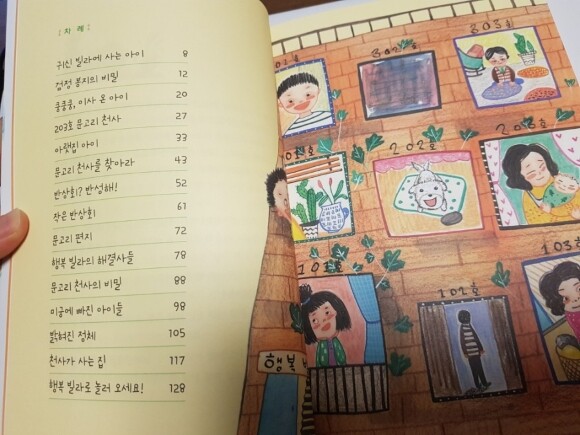 차례
귀신 빌라에 사는 아이 8
검정 봉지의 비밀 12
쿵쿵쿵, 이사 온 아이 20
203호 문고리 천사 27
아랫집 아이 33
문고리 천사를 찾아라 43
반상회? 반성해! 52
작은 반상회 61
문고리 편지 72
행복 빌라의 해결사들 78
문고리 천사의 비밀 88
미궁에 빠진 아이들 98
밝혀진 정체 105
천사가 사는 집 117
행복 빌라로 놀러 오세요! 128
303호
202호
203호
101호
102호
103호
행복